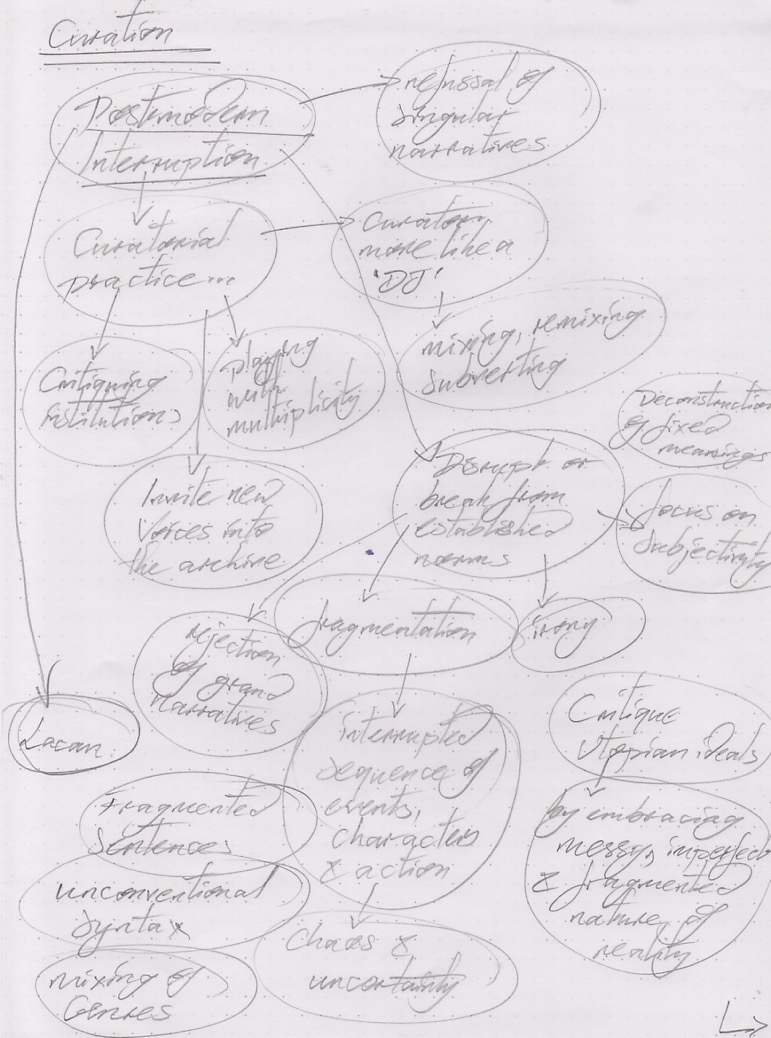 Curation
Postmodern
Interruption
refusal of
singular
narratives
Curatorial
practice...
Curator,
more like a
'DJ'
mixing, remixing
subverting
Critiquing
institutions
playing
with
multiplicity
Invite new
voices into
the archive
Disrupt or
break from
established
norms
Deconstruction
of fixed
meanings
focus on
subjectivity
rejection
of grand
narratives
fragmentation
irony
Lacan
interrupted
sequence of
events,
characters
& action
Critique
utopian ideals
by embracing
messy, imperfect
& fragmented
nature of
reality
Fragmented
sentences
unconventional
syntax
mixing of
Genres
Chaos &
uncertainty